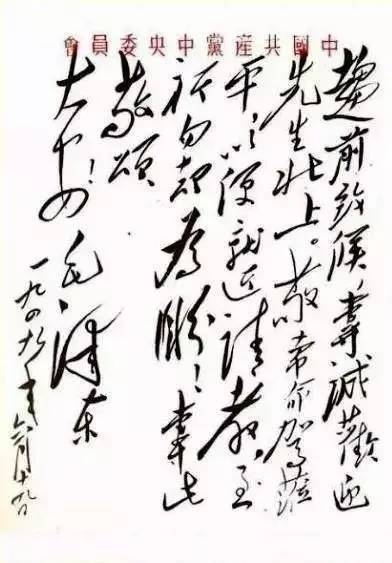 中國共產黨中央委員會
趨前致候,專誠歡迎
先生北上。敬希命駕蒞
平,以便就近請教,至
祈勿却為盼!專此
敬頌
大安!
毛澤東
一九四九年六月十九日